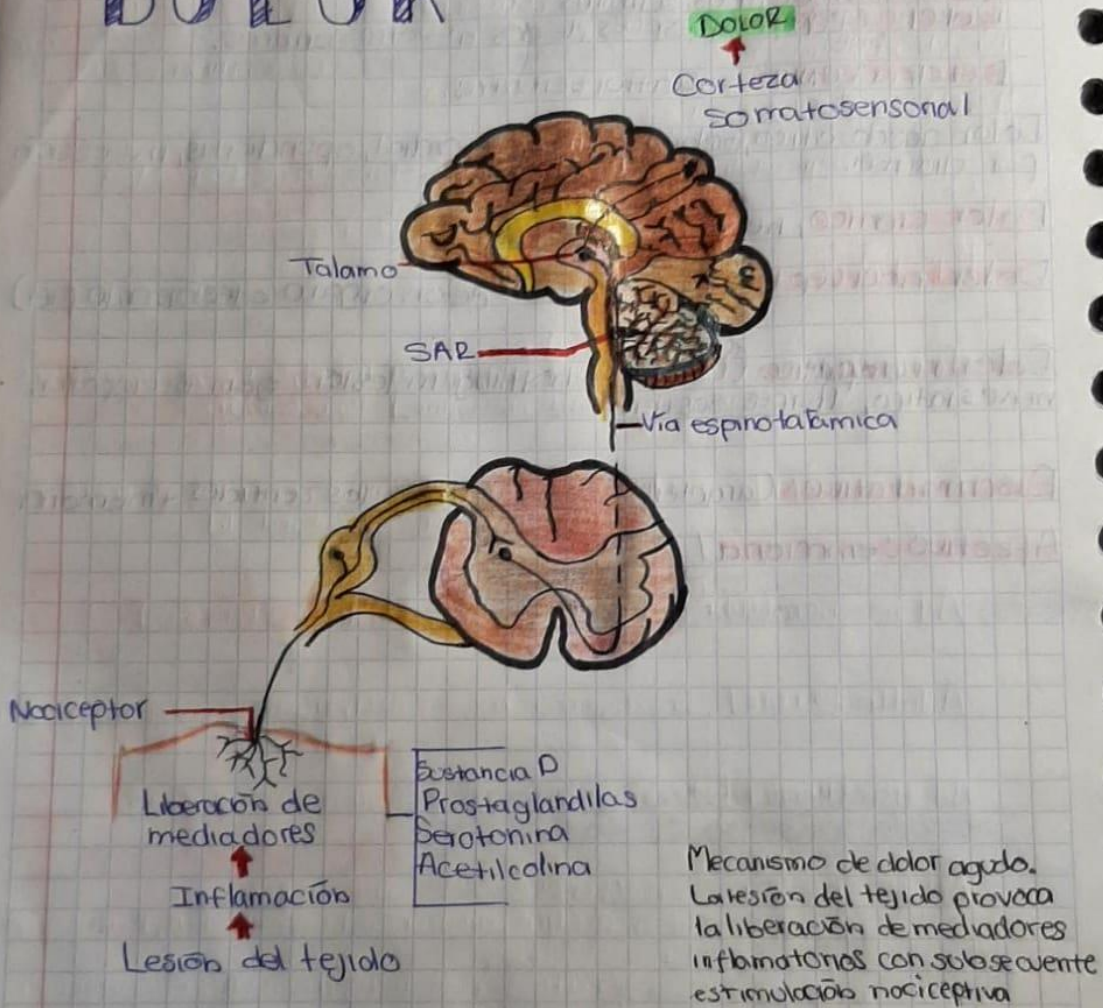 DOLOR
DOLOR
Corteza
somatosensorial
Talamo
SAR
Vía espinotalámica
Nociceptor
Liberación de
mediadores
Inflamación
Lesión del tejido
Sustancia P
Prostaglandilas
Serotonina
Acetilcolina
Mecanismo de dolor agudo.
La lesión del tejido provoca
la liberación de mediadores
inflamatorios con subsecuente
estimulación nociceptiva